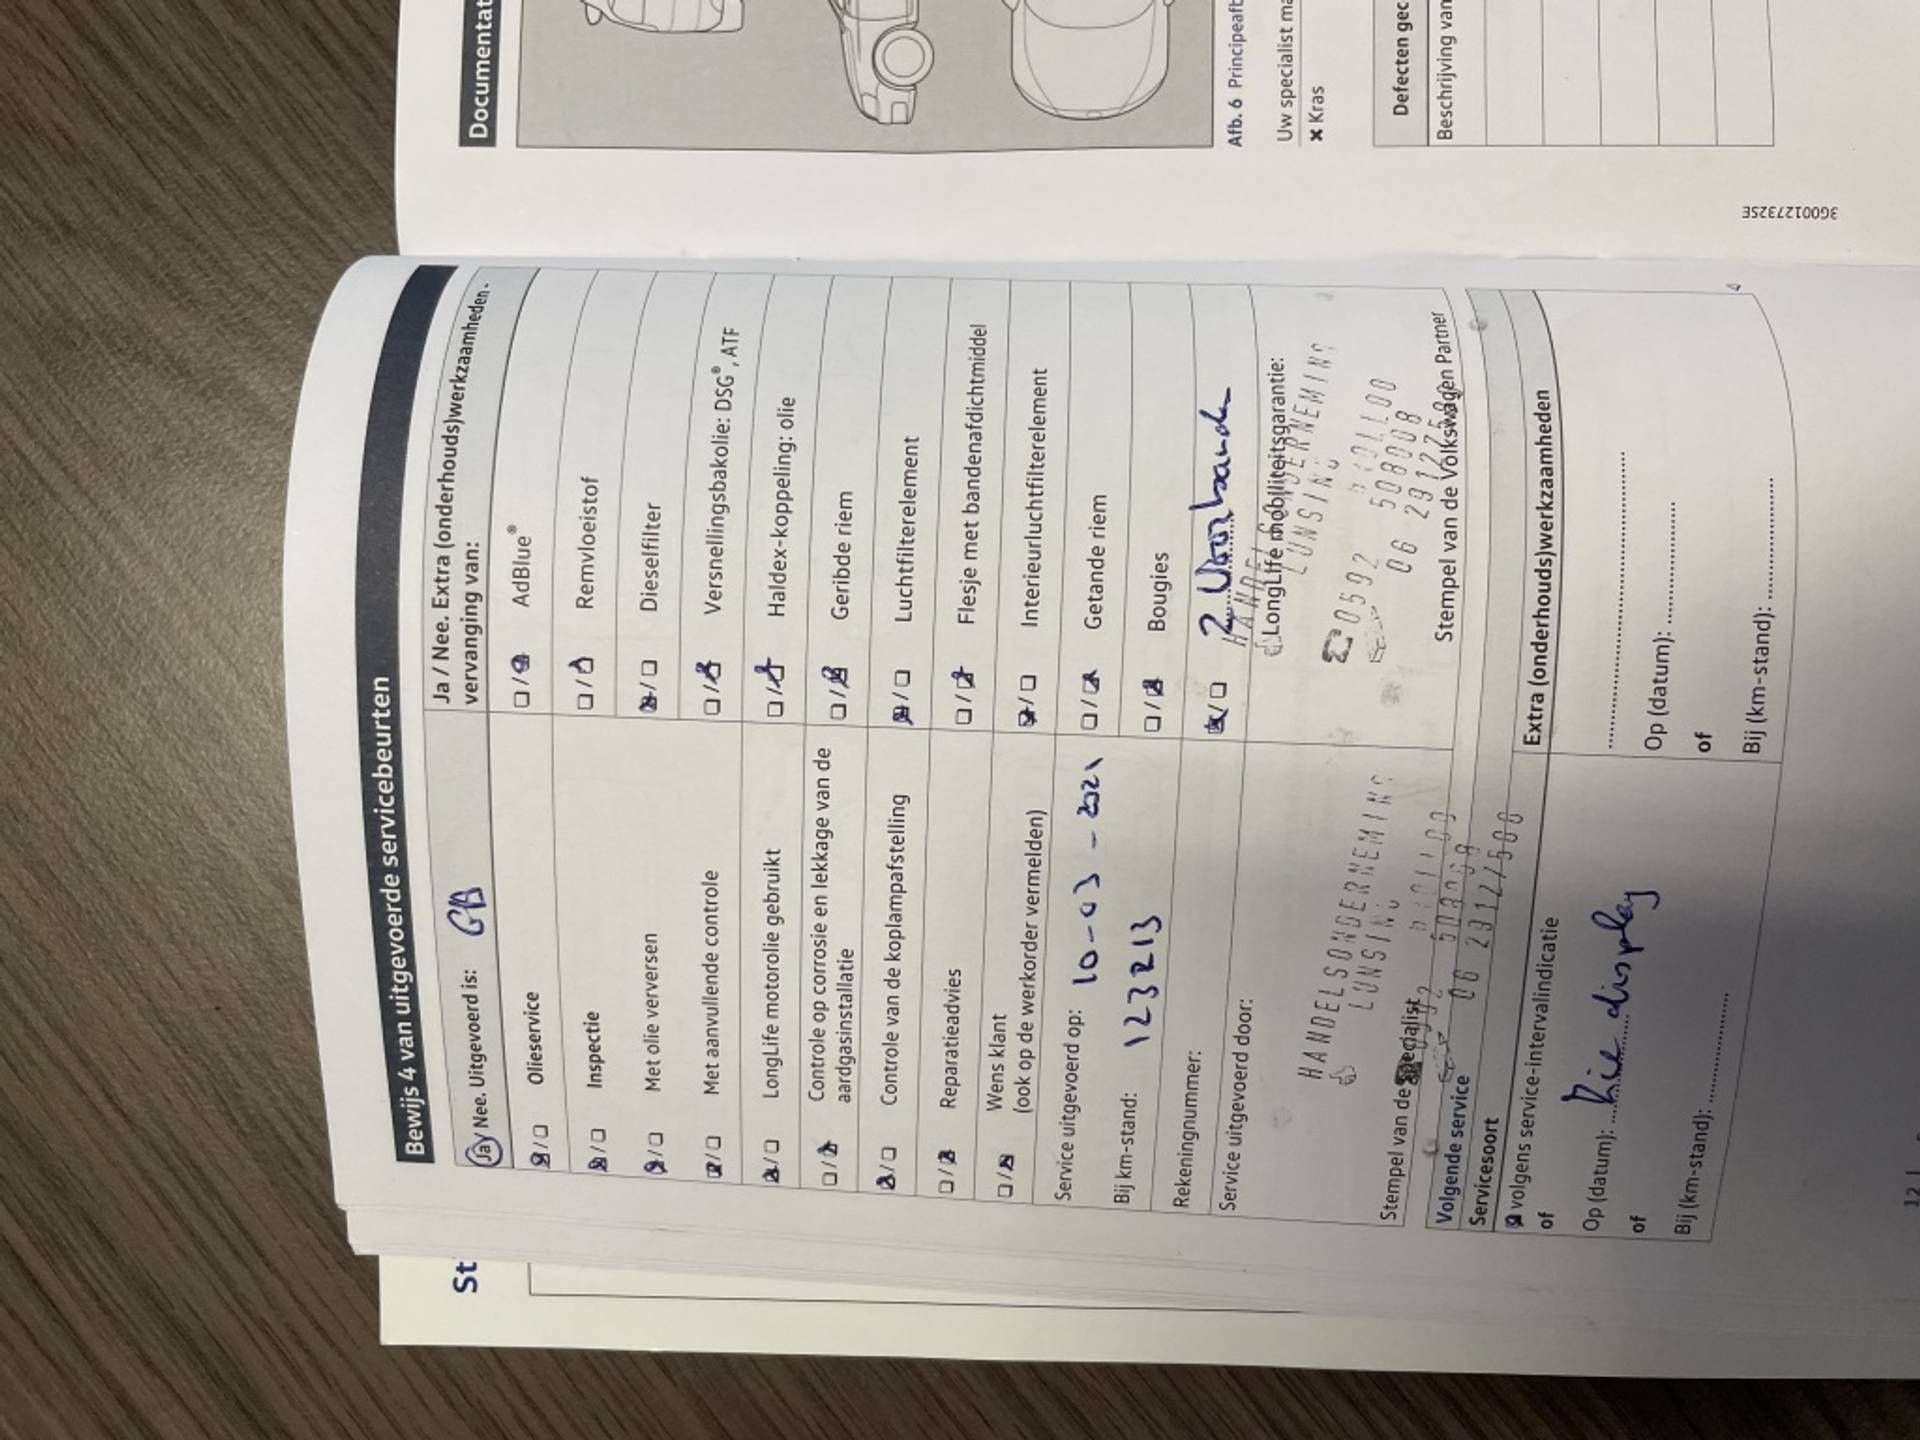 Bewijs 4 van uitgevoerde servicebeurten
Ja / Nee. Uitgevoerd is: GB
☒/☐ Olieservice
☒/☐ Inspectie
☒/☐ Met olie verversen
☒/☐ Met aanvullende controle
☒/☐ LongLife motorolie gebruikt
☐/☒ Controle op corrosie en lekkage van de
aardgasinstallatie
☒/☐ Controle van de koplampafstelling
☐/☒ Reparatieadvies
☐/☒ Wens klant
(ook op de werkorder vermelden)
Service uitgevoerd op: 10-03-2021
Bij km-stand: 123213
Rekeningnummer:
Service uitgevoerd door:
HANDELSONDERNEMING
LUNSING
508008
Stempel van de specialist
Ja / Nee. Extra (onderhouds)werkzaamheden -
vervanging van:
☐/☒ AdBlue®
☐/☒ Remvloeistof
☒/☐ Dieselfilter
☐/☒ Versnellingsbakolie: DSG®, ATF
☐/☒ Haldex-koppeling: olie
☐/☒ Geribde riem
☒/☐ Luchtfilterelement
☐/☒ Flesje met bandenafdichtmiddel
☒/☐ Interieurluchtfilterelement
☐/☒ Getande riem
☐/☒ Bougies
☒/☐ 2 Voorbanden
LongLife mobiliteitsgarantie:
HANDELSONDERNEMING
LUNSING
0592 508008
Stempel van de Volkswagen Partner
Volgende service
Servicesoort
☒ volgens service-intervalindicatie
of
Op (datum): Zie display
of
Bij (km-stand):
Extra (onderhouds)werkzaamheden
Op (datum):
of
Bij (km-stand):
4
12
St
Documentat
Afb. 6 Principeafb
Uw specialist ma
✖ Kras
Defecten gec
Beschrijving van
3G0012732SE